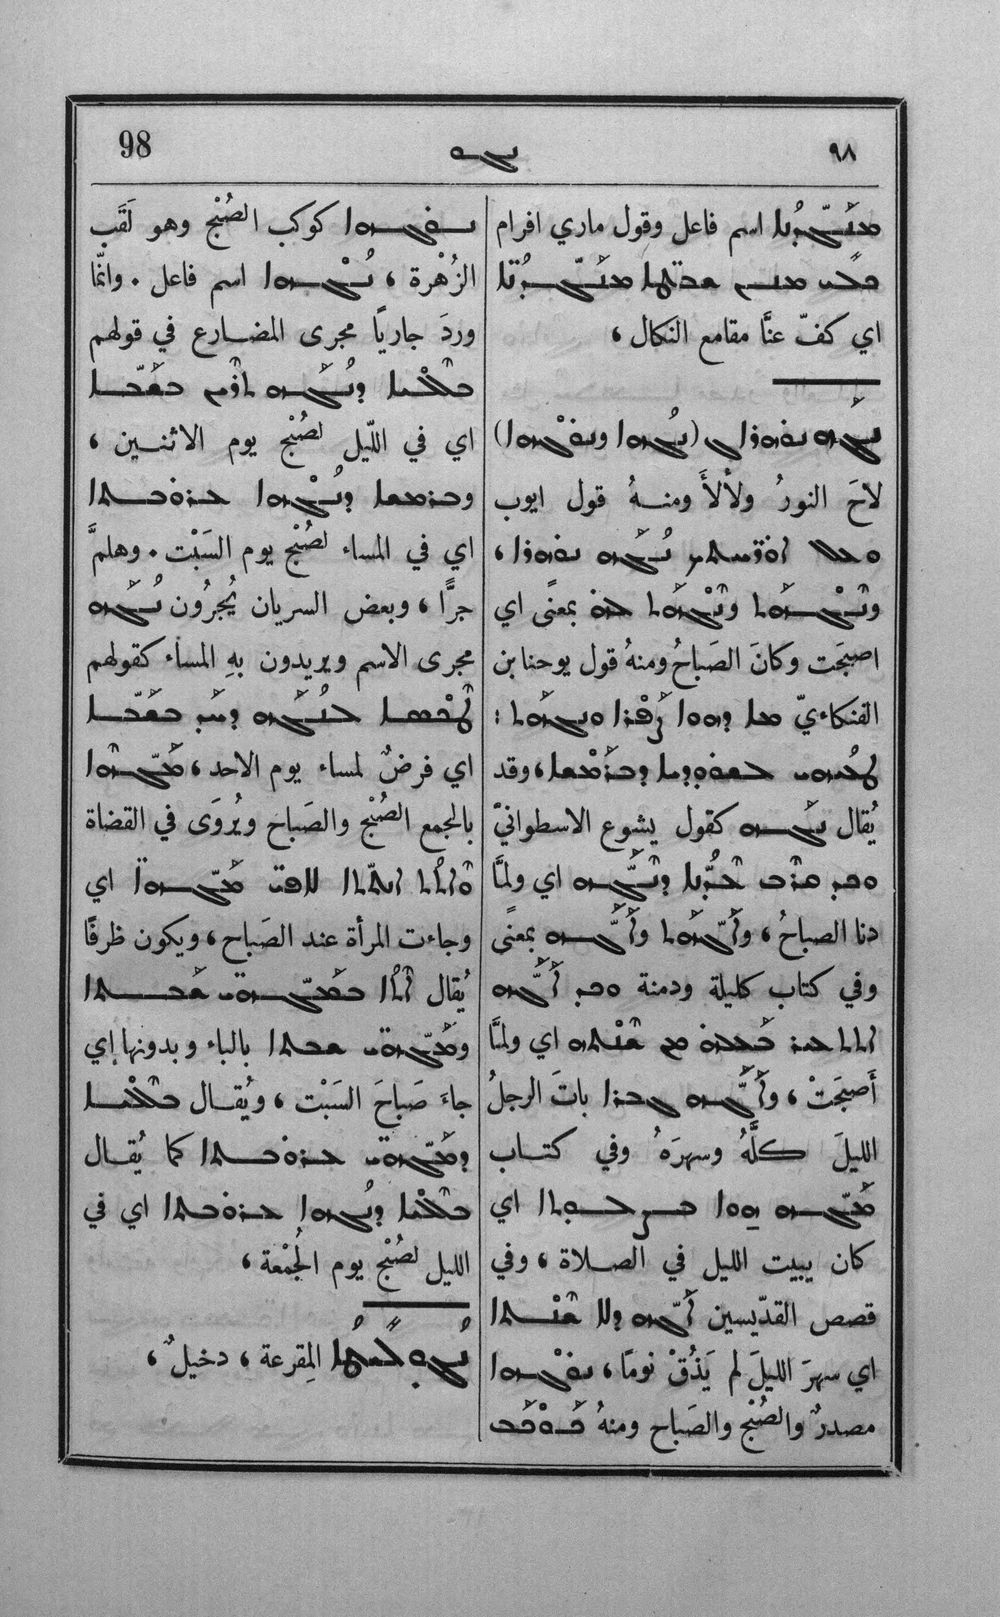 98
ܢܓܗ
٩٨
ܡܢܓܕܢܐ اسم فاعل وقول ماري افرام
ܡܢܢ ܫܒ̈ܛܐ ܡܢܓܕ̈ܢܐ
اي كفّ عنَّا مقامع النكال ،
ܢܓܗ ܢܘܗܪܐ (ܢܓܗܐ ܘܢܘܓܗܐ)
لاحَ النورُ ولألأَ ومنهُ قول ايوب
ܘܥܠ ܐܘܪ̈ܚܬܟ ܢܓܗ ܢܘܗܪܐ ،
بمعنًى اي
اصبحَت وكانَ الصَباحُ ومنهُ قول يوحنا بن
الفنكاءيّ ܡܐ ܕܗܘܐ ܨܦܪܐ ܘܢܓܗܬ :
ܕܒܪܡܫܐ ، وقد
يُقال ܢܓܗ كقول يشوع الاسطوانيّ
اي ولمَّا
دنا الصباحُ ، ܘܐܓܗܬ ܘܐܓܗ بمعنًى
وفي كتاب كليلة ودمنة ܘܟܕ ܐܓܗ
اي ولمَّا
أَصبحَتْ ، ܘܐܓܗ ܓܒܪܐ باتَ الرجلُ
الليلَ كلَّهُ وسهرَهُ وفي كتاب
ܡܓܗ ܗܘܐ ܒܨܠܘܬܐ اي
كان يبيت الليل في الصلاة ، وفي
قصص القدّيسين ܐܓܗ ܕܠܐ ܫܢܬܐ
اي سهرَ الليلَ لم يَذُقْ نومًا ، ܢܘܓܗܐ
مصدرٌ والصُبْح والصَباح ومنهُ ܟܘܟܒ
ܢܘܓܗܐ كوكب الصُبْح وهو لَقَب
الزُهْرة ، ܢܓܗܐ اسم فاعل . وانَّما
وردَ جاريًا مجرى المضارع في قولهم
ܒܠܠܝܐ ܕܢܓܗ ܬܪܝܢ ܒܫܒܐ
اي في اللّيل لصُبْح يوم الاثنين ،
ܘܒܪܡܫܐ ܕܢܓܗܐ ܥܪܘܒܬܐ
اي في المساء لصُبْح يوم السَبْت . وهلمَّ
جرًّا ، وبعض السريان يُجرُون ܢܓܗ
مجرى الاسم ويريدون بهِ المساء كقولهم
ܛܟܣܐ ܕܢܓܗ ܕܚܕ ܒܫܒܐ
اي فرضٌ لمساء يوم الاحد ، ܡܓܗܐ
بالجمع الصُبْح والصَباح ويُروَى في القضاة
ܘܐܬܬ ܐܢܬܬܐ ܠܐܦܝ ܡܓܗ̈ܐ اي
وجاءت المرأة عند الصَباح ، ويكون ظرفًا
يُقال ܐܬܐ ܒܡܓܗܝ ܫܒܬܐ
ܘܡܓܗܝ ܫܒܬܐ بالباء وبدونها اي
جاءَ صَباحَ السَبْت ، ويُقال ܒܠܠܝܐ
ܕܡܓܗܝ ܥܪܘܒܬܐ كما يُقال
ܒܠܠܝܐ ܕܢܓܗܐ ܥܪܘܒܬܐ اي في
الليل لصُبْح يوم الجُمْعة ،
المِقرعة ، دخيلٌ ،